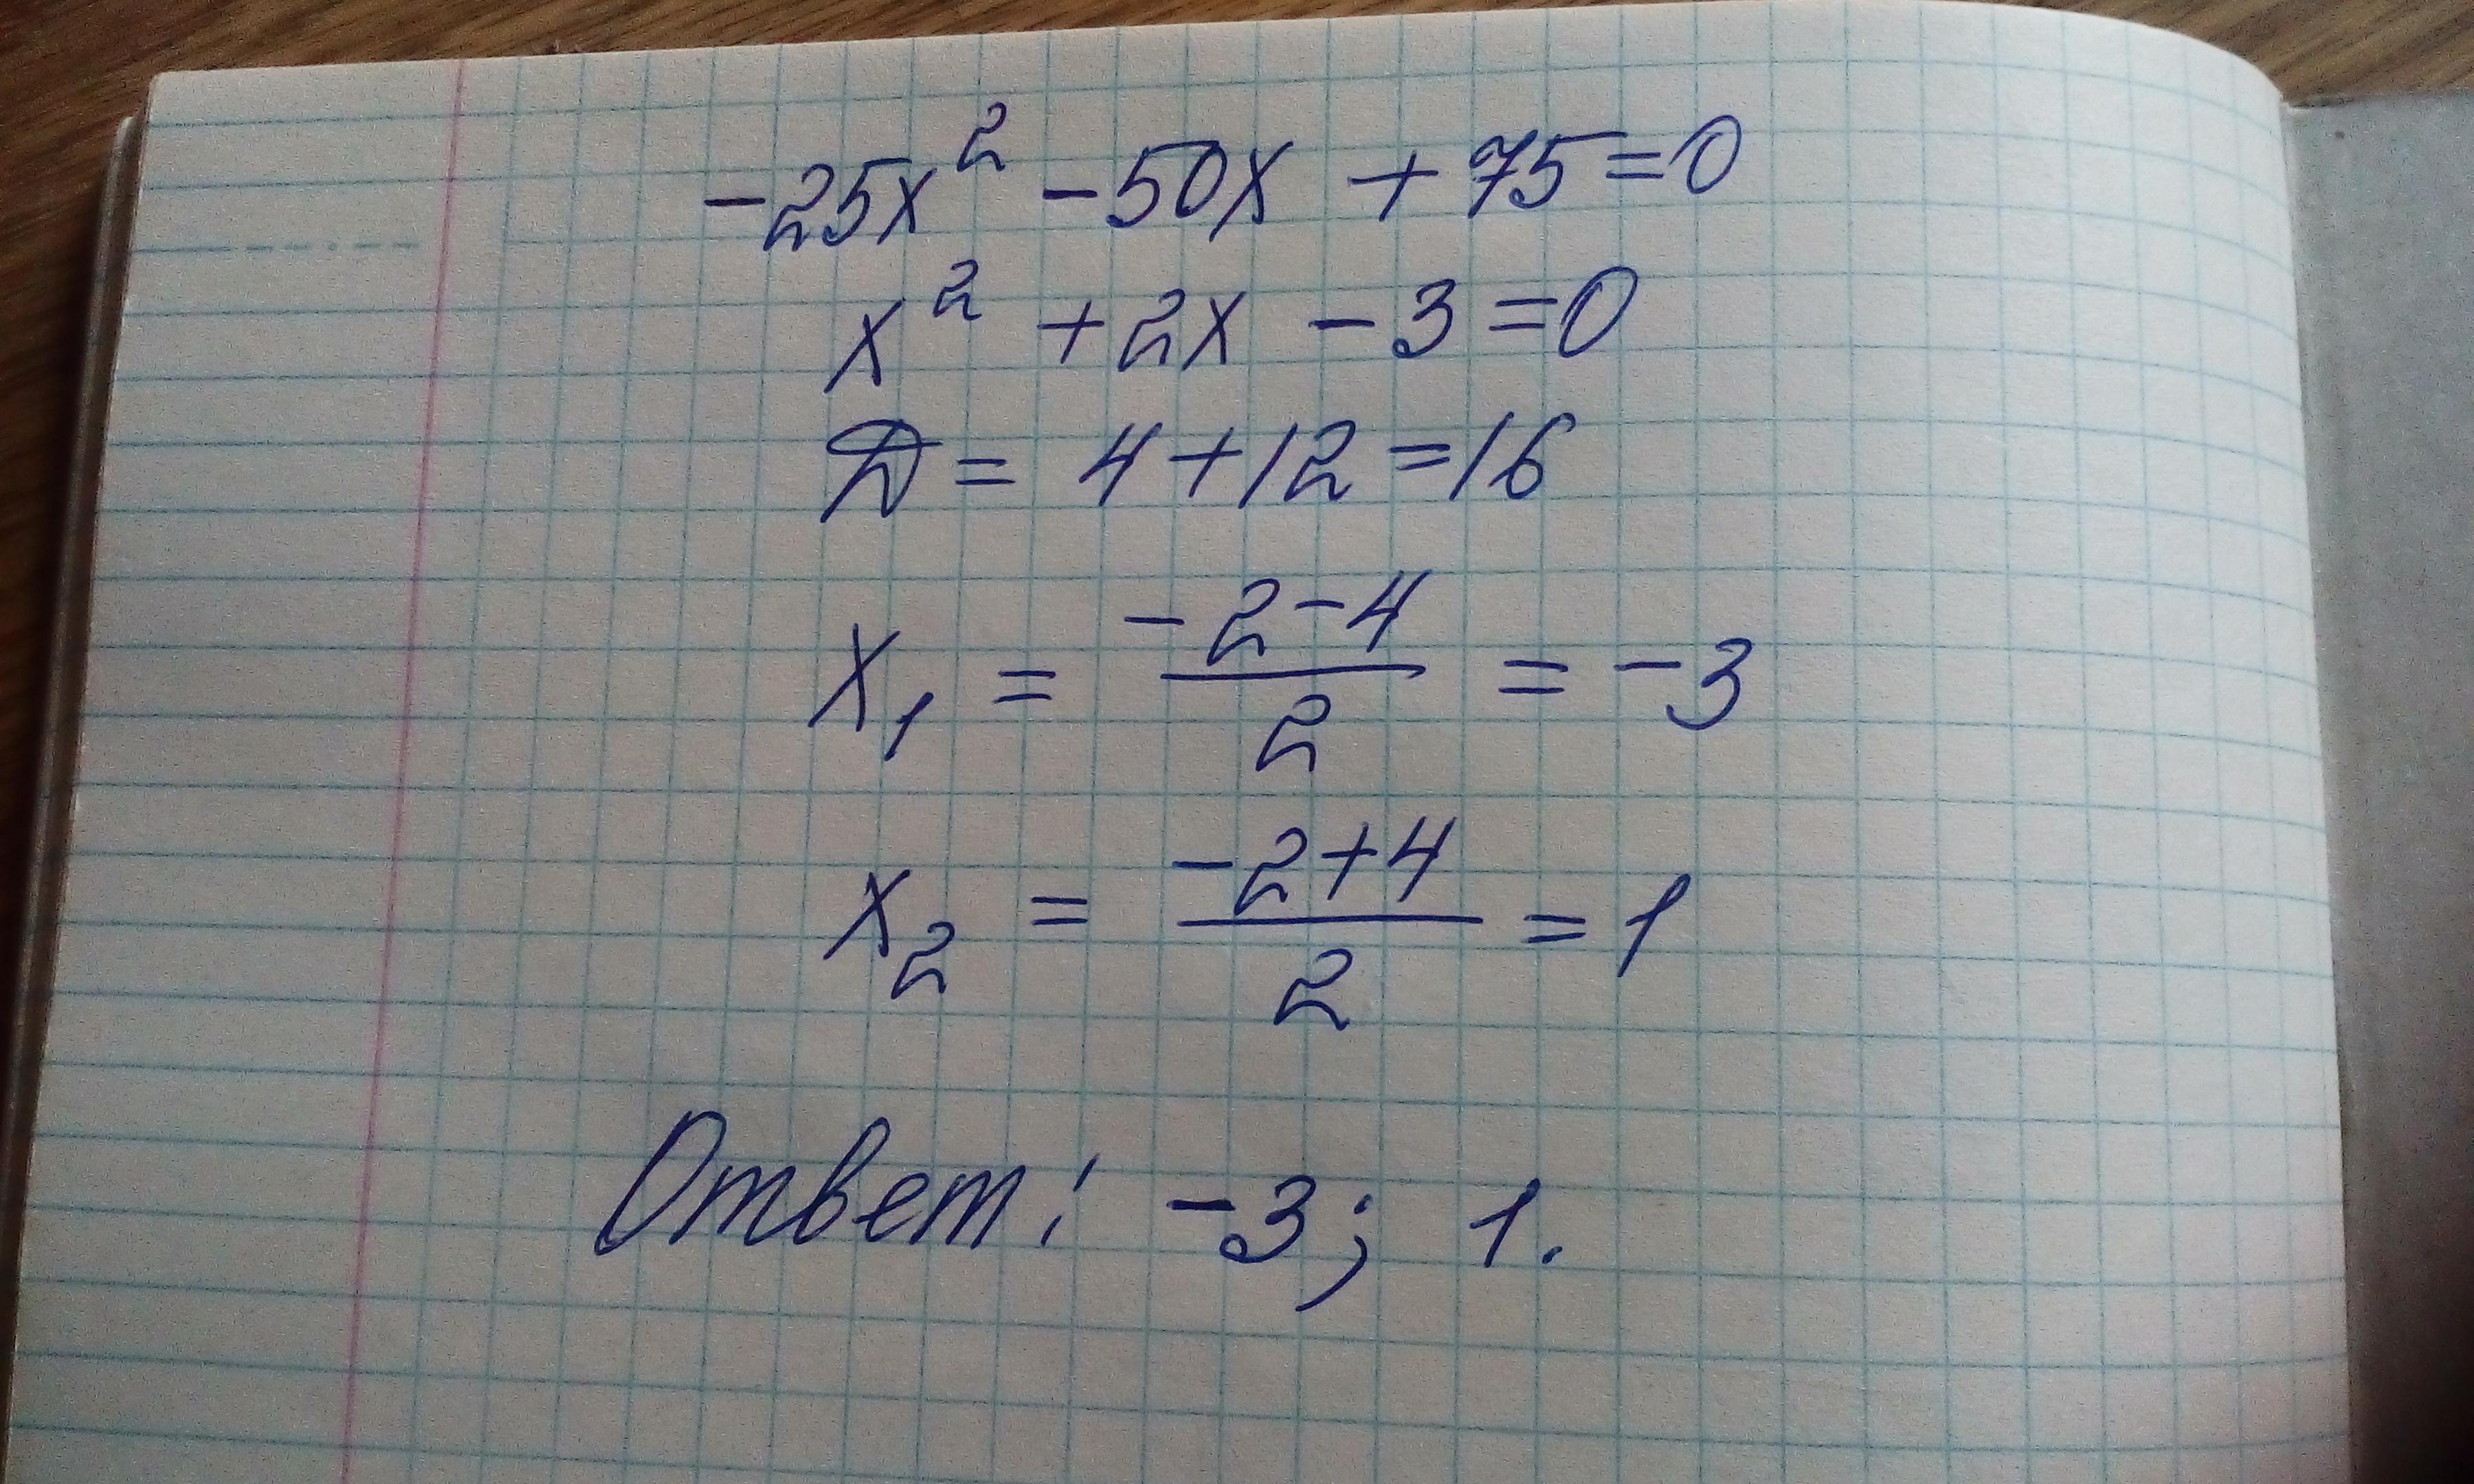 -25x² - 50x + 75 = 0
x² + 2x - 3 = 0
Д = 4 + 12 = 16
x₁ = (-2-4)/2 = -3
x₂ = (-2+4)/2 = 1
Ответ: -3; 1.